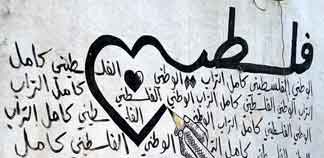 فلسطين
الفلسطيني كامل
الوطني الفلسطيني كامل التراب الوطني كامل التراب
التراب الوطني الفلسطيني كامل التراب الوطني الفلسطيني كامل التراب الوطني
كامل التراب الوطني الفلسطيني كامل التراب
التراب الوطني الفلسطيني كامل الوطني الفلسطيني كامل